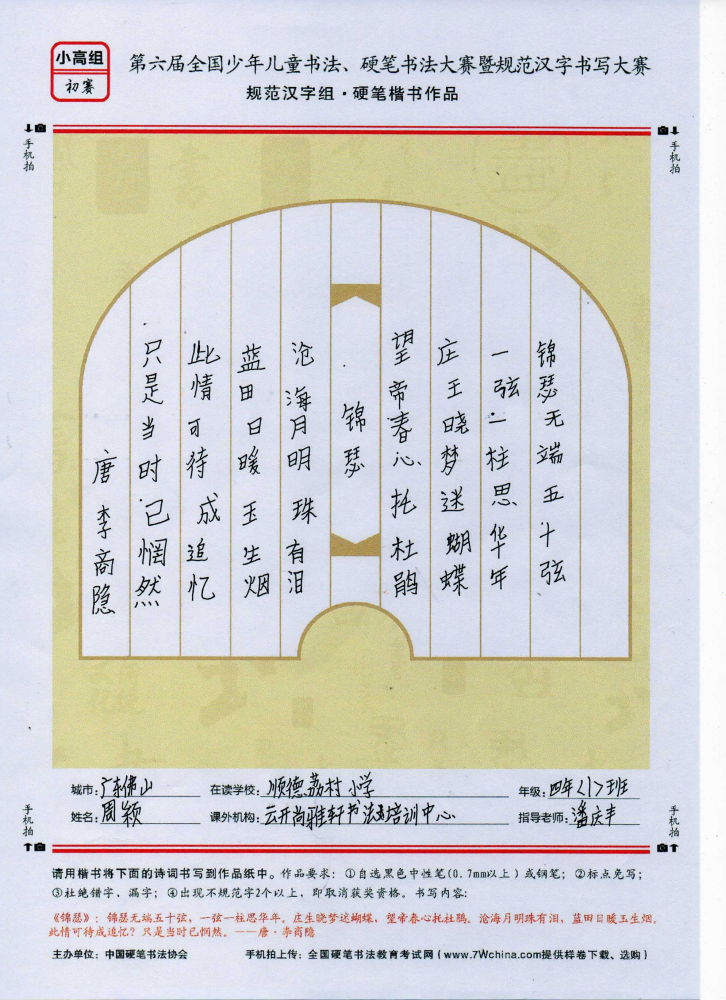 小高组
初赛
第六届全国少年儿童书法、硬笔书法大赛暨规范汉字书写大赛
规范汉字组·硬笔楷书作品
手机拍
手机拍
锦瑟无端五十弦
一弦一柱思华年
庄王晓梦迷蝴蝶
望帝春心托杜鹃
锦瑟
沧海月明珠有泪
蓝田日暖玉生烟
此情可待成追忆
只是当时已惘然
唐李商隐
城市:广东佛山 在读学校:顺德荔村小学 年级:四年<1>班
姓名:周颖 课外机构:云开尚雅轩书法培训中心 指导老师:潘庆丰
手机拍
手机拍
请用楷书将下面的诗词书写到作品纸中。作品要求:①自选黑色中性笔(0.7mm以上)或钢笔;②标点免写;
③杜绝错字、漏字;④出现不规范字2个以上,即取消获奖资格。书写内容:
《锦瑟》:锦瑟无端五十弦,一弦一柱思华年。庄生晓梦迷蝴蝶,望帝春心托杜鹃。沧海月明珠有泪,蓝田日暖玉生烟。
此情可待成追忆?只是当时已惘然。——唐·李商隐
主办单位:中国硬笔书法协会 手机拍上传:全国硬笔书法教育考试网(www.7Wchina.com提供样卷下载、选购)